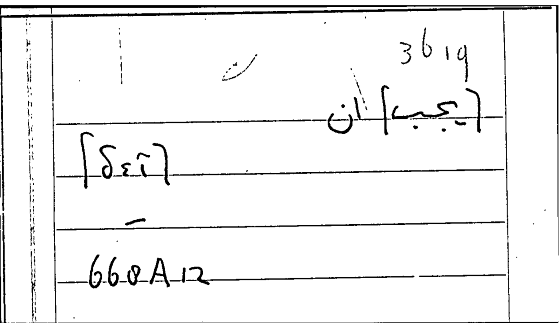 3619
[يجب] ان
[δεῖ]
–
668A12